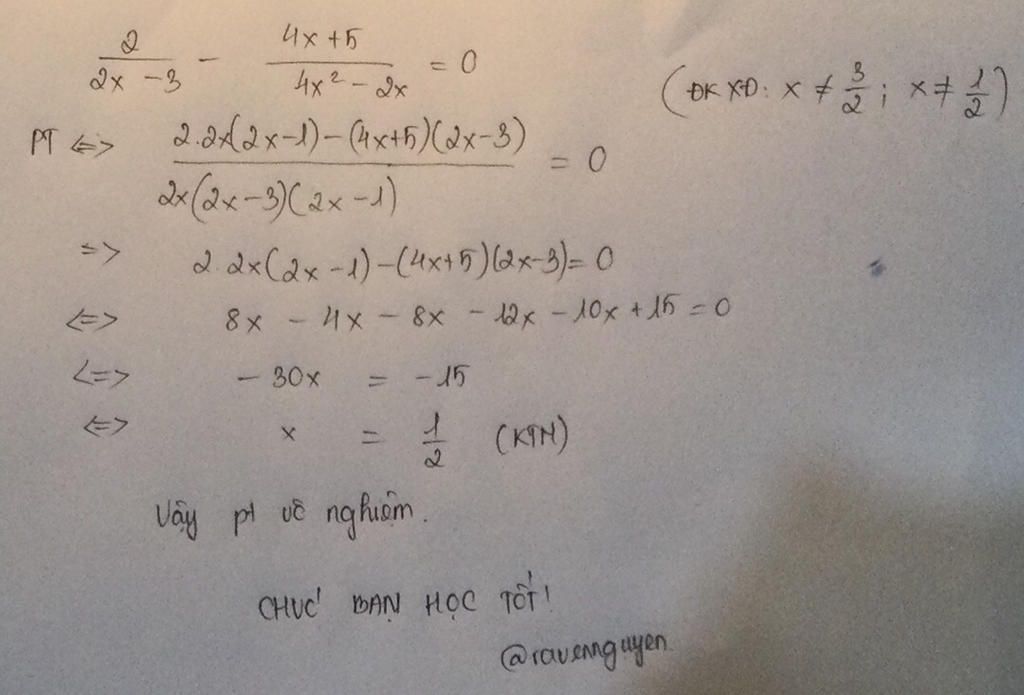 2/(2x - 3) - (4x + 5)/(4x² - 2x) = 0 (ĐKXĐ: x ≠ 3/2 ; x ≠ 1/2)
PT <=> (2.2x(2x-1) - (4x+5)(2x-3))/(2x(2x-3)(2x-1)) = 0
=> 2.2x(2x-1) - (4x+5)(2x-3) = 0
<=> 8x - 4x - 8x - 12x - 10x + 15 = 0
<=> - 30x = -15
<=> x = 1/2 (KTM)
Vậy pt vô nghiệm.
CHÚC BẠN HỌC TỐT!
@ravennguyen